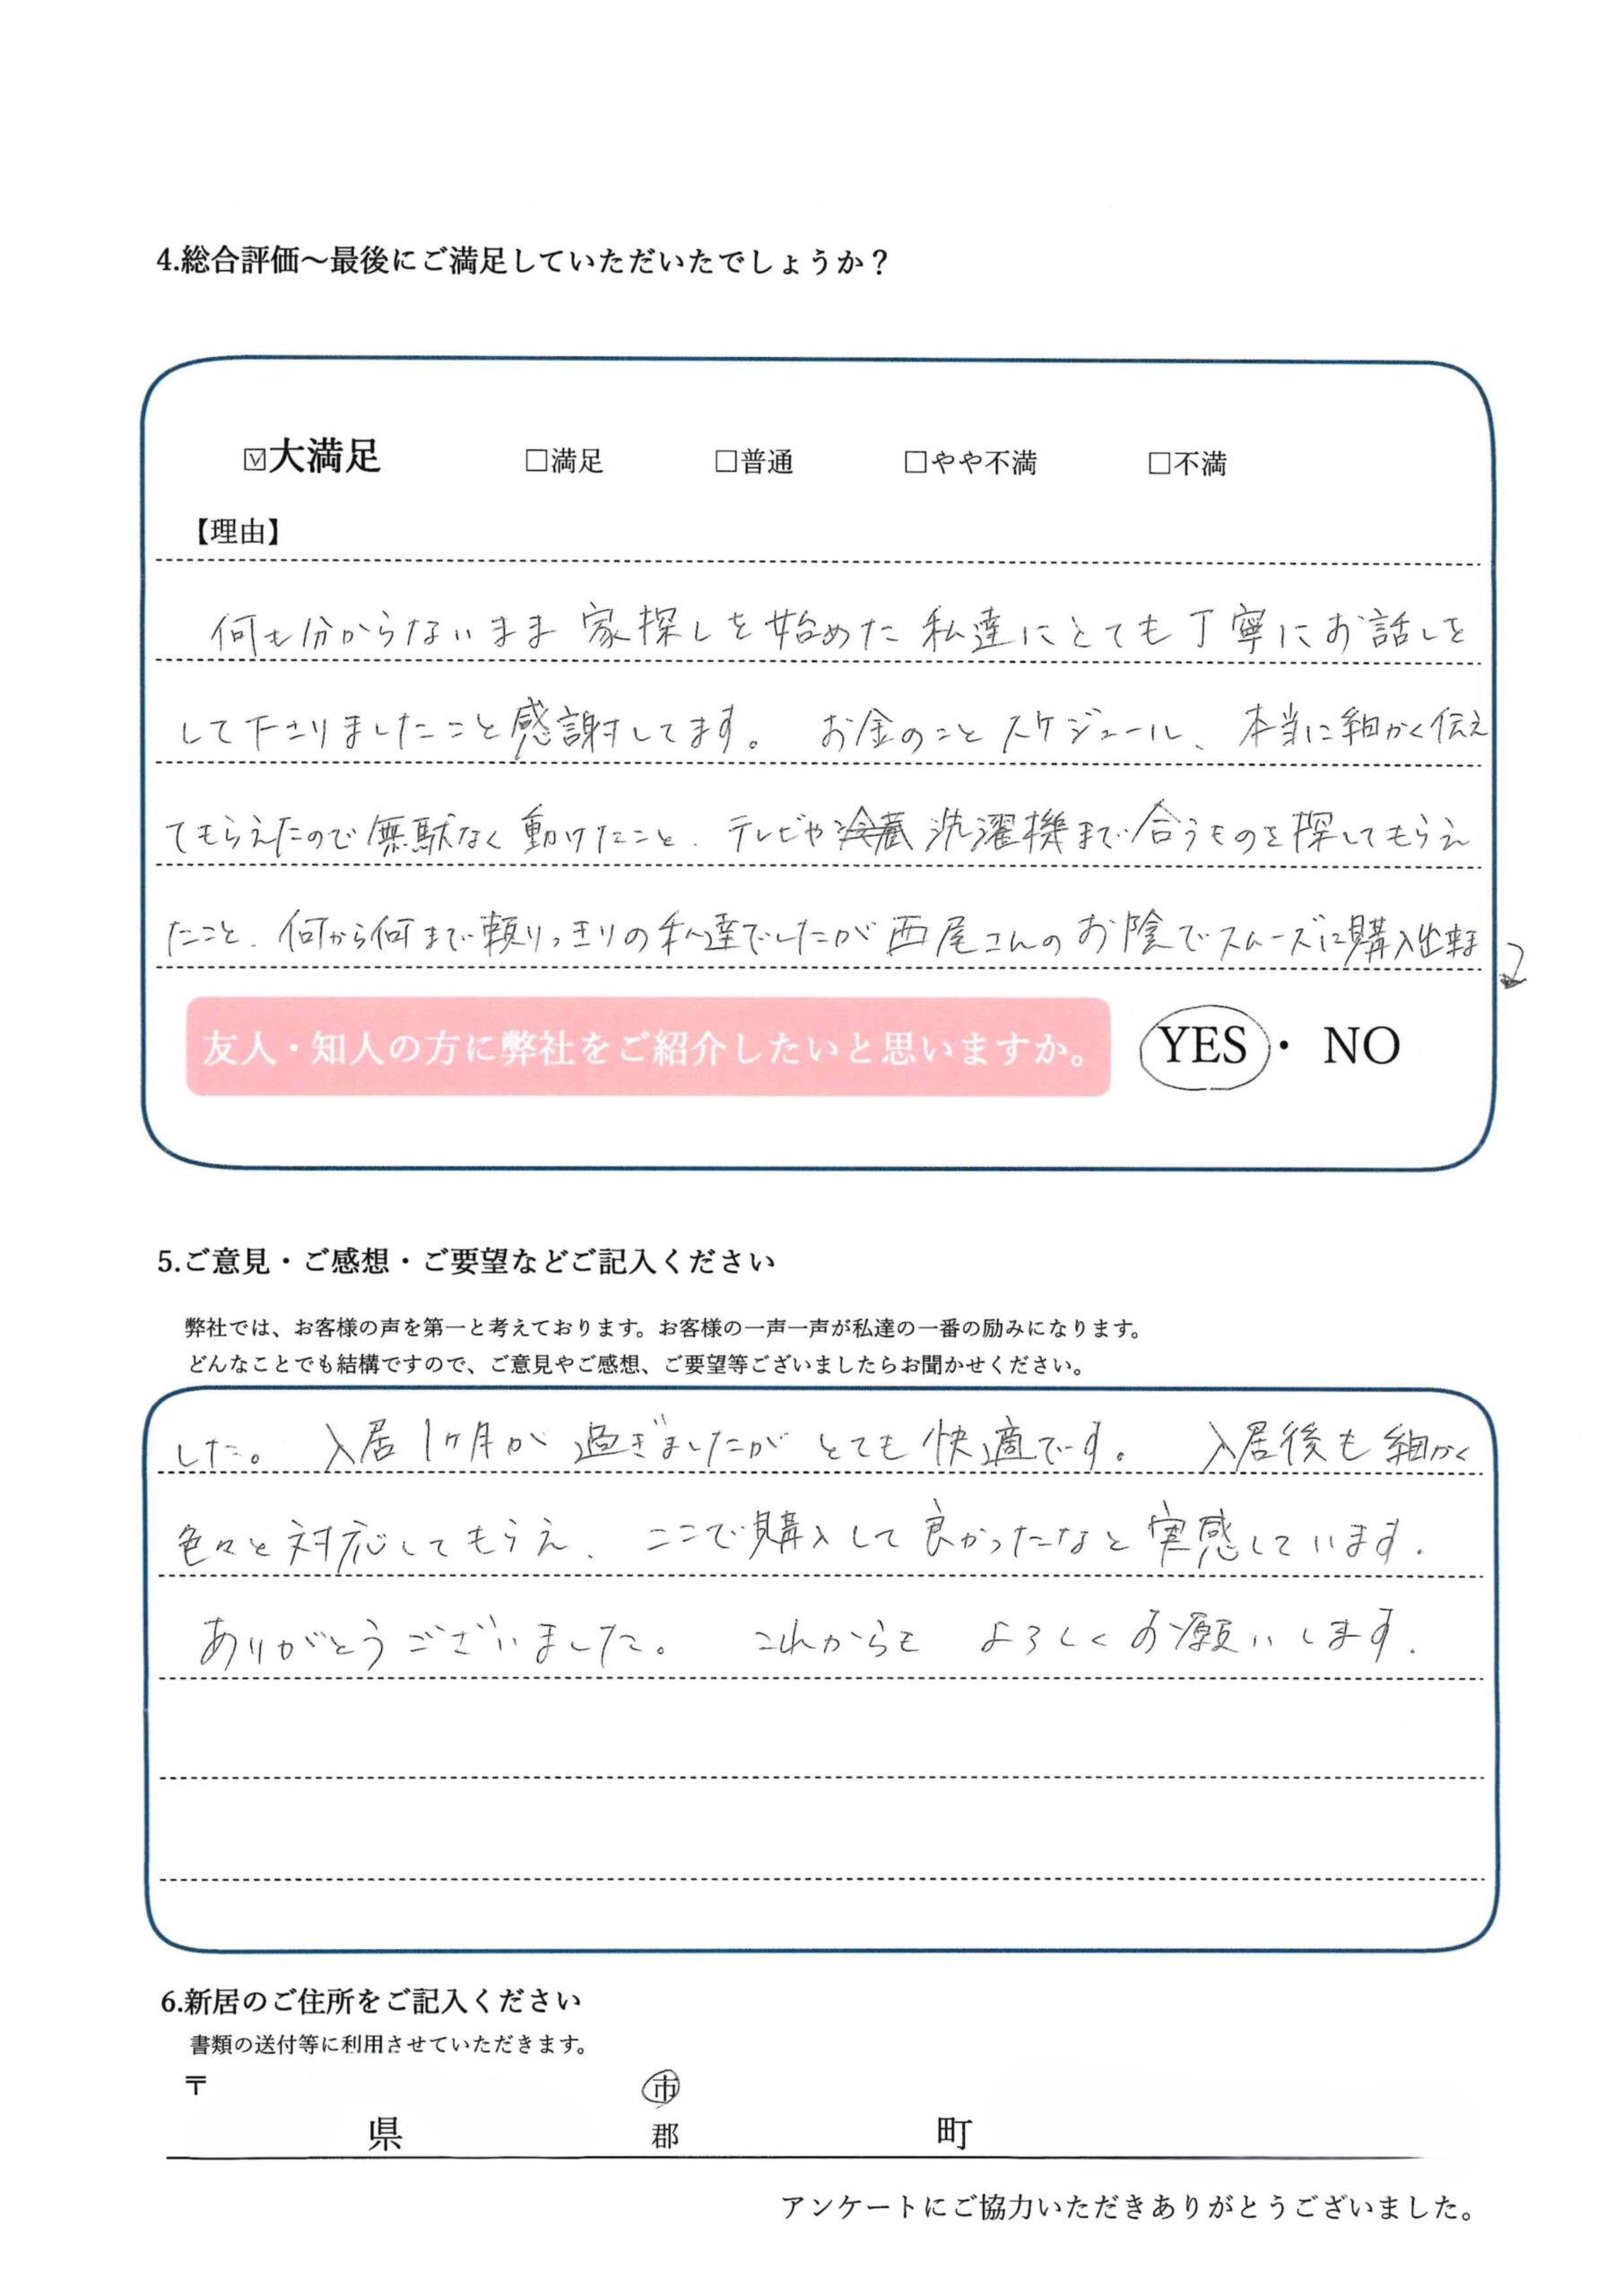 4.総合評価～最後にご満足していただいたでしょうか？
☑大満足 □満足 □普通 □やや不満 □不満
【理由】
何も分からないまま家探しを始めた私達にとても丁寧にお話しを
して下さりましたこと感謝してます。 お金のこと スケジュール、本当に細かく伝え
てもらえたので無駄なく動けたこと、テレビや冷蔵 洗濯機まで合うものを探してもらえ
たこと、何から何まで頼りっきりの私達でしたが西尾さんのお陰でスムーズに購入出来ま
友人・知人の方に弊社をご紹介したいと思いますか。 YES・NO
5.ご意見・ご感想・ご要望などご記入ください
弊社では、お客様の声を第一と考えております。お客様の一声一声が私達の一番の励みになります。
どんなことでも結構ですので、ご意見やご感想、ご要望等ございましたらお聞かせください。
した。 入居1ヶ月が過ぎましたがとても快適です。 入居後も細かく
色々と対応してもらえ、ここで購入して良かったなと実感しています.
ありがとうございました。 これからも よろしくお願いします.
6.新居のご住所をご記入ください
書類の送付等に利用させていただきます。
〒
市
県 郡 町
アンケートにご協力いただきありがとうございました。